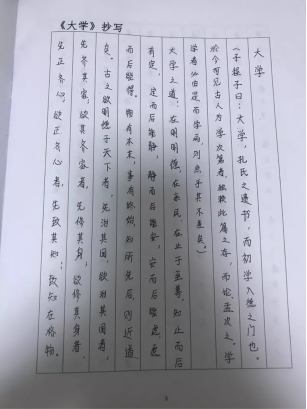 《大学》抄写
大学
（子程子曰：大学，孔氏之遗书，而初学入德之门也。
於今可见古人为学次第者，独赖此篇之存，而论、孟次之。学
学者必由是而学焉，则庶乎其不差矣。）
大学之道：在明明德，在亲民，在止于至善。知止而后
有定，定而后能静，静而后能安，安而后能虑，虑
而后能得。物有本末，事有终始，知所先后，则近道
矣。古之欲明明德于天下者，先治其国，欲治其国者，
先齐其家；欲齐其家者，先修其身；欲修其身者，
先正其心；欲正其心者，先致其知；致知在格物。